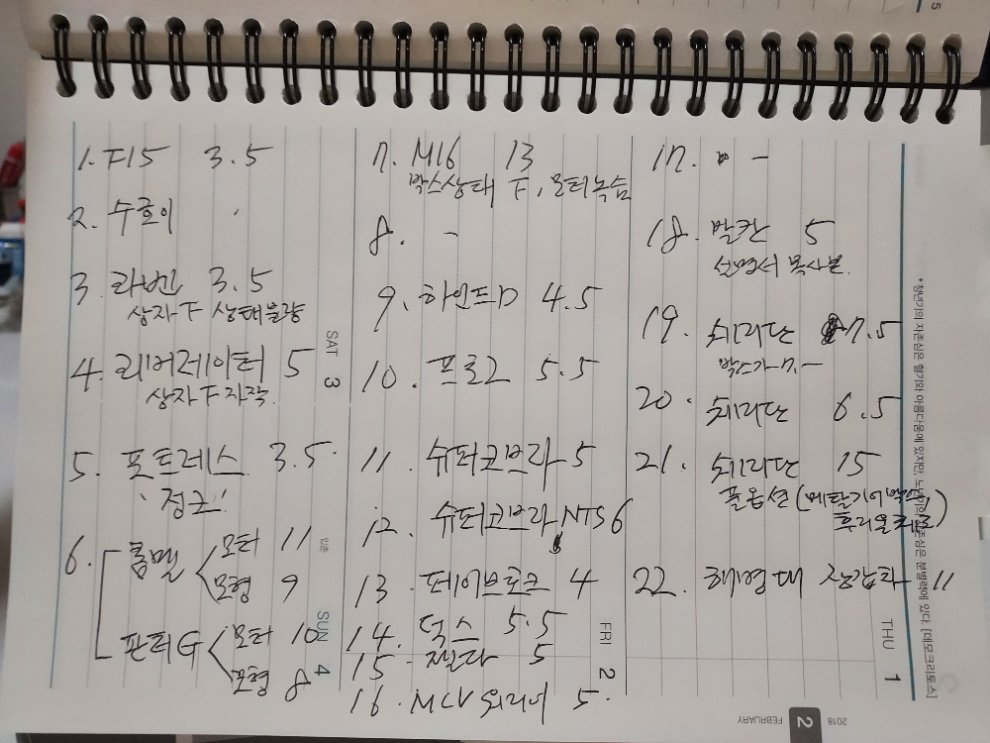 1. F15 3.5
2. 수호이
3. 라벤 3.5
상자 F 상태불량
4. 리버레이터 5
상자 F 자작
5. 포트레스 3.5
"정크"
6. 롬멜 모터 11
모형 9
판터G 모터 10
모형 8
7. M16 13
박스상태 F, 모터녹슴
8. -
9. 하인드D 4.5
10. 프로그 5.5
11. 슈퍼코브라 5
12. 슈퍼코브라 NTS 6
13. 페이브로크 4
14. 덕스 5.5
15. 젤다 5
16. MCV 5
17. -
18. 발칸 5
설명서 복사본
19. 쉐리단 7.5
박스가
20. 쉐리단 6.5
21. 쉐리단 15
풀옵션 (메탈기어박스,
22. 해병대 장갑차 11
SAT 3
입춘
SUN 4
FRI 2
THU 1
2018
FEBRUARY 2
*청년기의 자존심은 혈기와 아름다움에 있지만, 노년기의 자존심은 분별력에 있다. [데모크리토스]
5